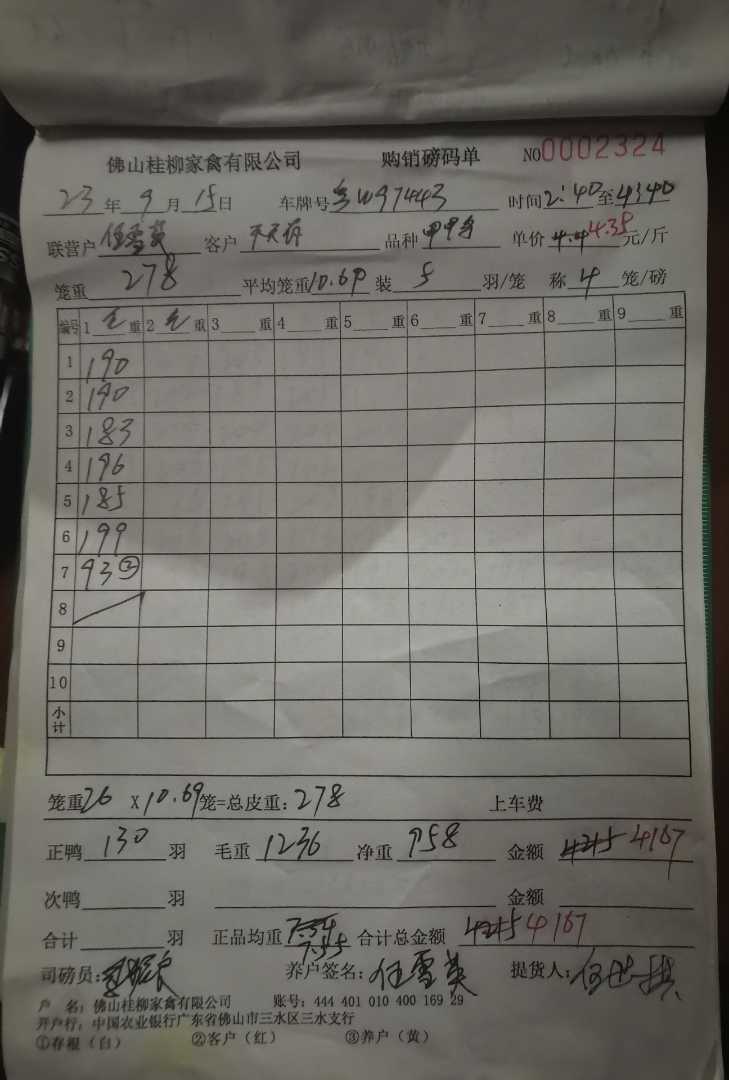 佛山桂柳家禽有限公司 购销磅码单 NO 0002324
23 年 9 月 15 日 车牌号 W97443 时间 2:40 至 4:40
联营户 任雪英 客户 品种 单价 4.4 4.35 元/斤
笼重 278 平均笼重 10.69 装 5 羽/笼 称 4 笼/磅
编号 1 毛 重 2 毛 重 3 重 4 重 5 重 6 重 7 重 8 重 9 重
1 190
2 190
3 183
4 196
5 185
6 199
7 93 ②
8
9
10
小计
笼重 26 X 10.69 笼=总皮重: 278 上车费
正鸭 130 羽 毛重 1236 净重 958 金额 4215 4167
次鸭 羽 金额
合计 羽 正品均重 7.35 合计总金额 4215 4167
司磅员: 养户签名: 任雪英 提货人:
户 名: 佛山桂柳家禽有限公司 账号: 444 401 010 400 169 29
开户行: 中国农业银行广东省佛山市三水区三水支行
①存根（白） ②客户（红） ③养户（黄）